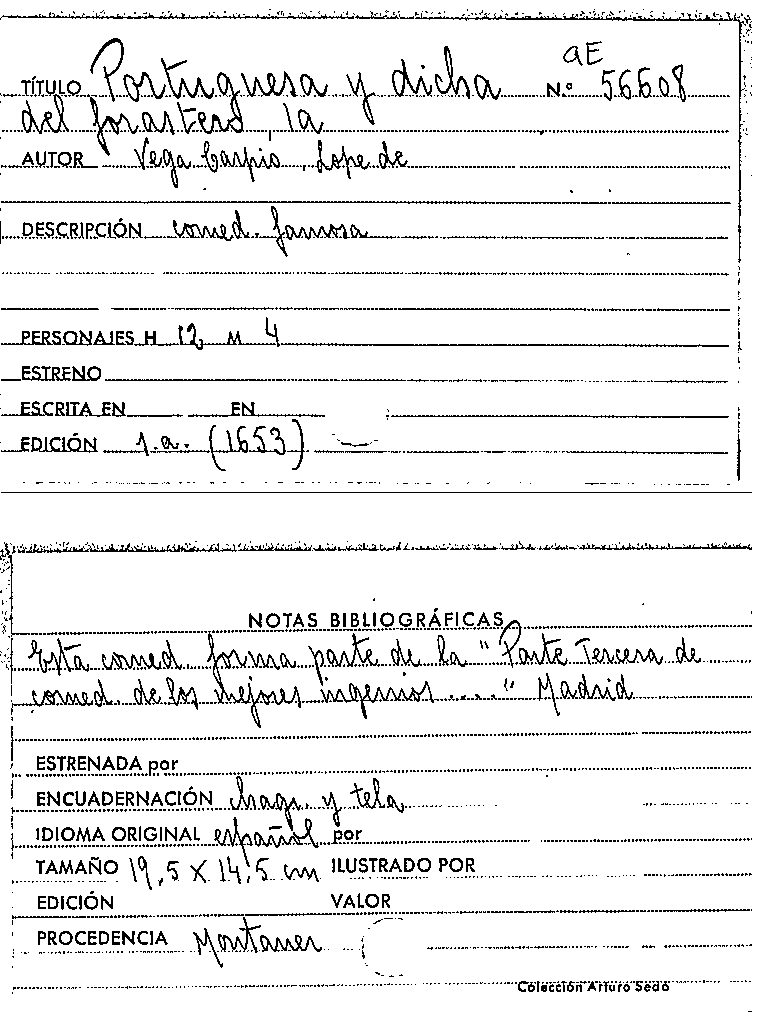 aE
TÍTULO Portuguesa y dicha N.º 56608
del forastero, la
AUTOR Vega Carpio, Lope de
DESCRIPCIÓN comed. famosa
PERSONAJES H 12 M 4
ESTRENO
ESCRITA EN EN
EDICIÓN 1.a. (1653)
NOTAS BIBLIOGRÁFICAS
Esta comed. forma parte de la "Parte Tercera de
comed. de los mejores ingenios...." Madrid
ESTRENADA por
ENCUADERNACIÓN chagr. y tela
IDIOMA ORIGINAL español por
TAMAÑO 19,5 X 14,5 cm ILUSTRADO POR
EDICIÓN VALOR
PROCEDENCIA Montaner
Colección Arturo Sedó